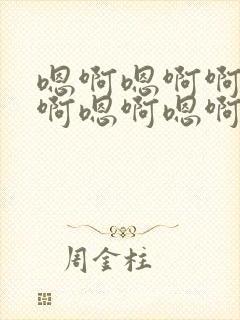 嗯啊嗯啊啊
啊嗯啊嗯啊
周金柱